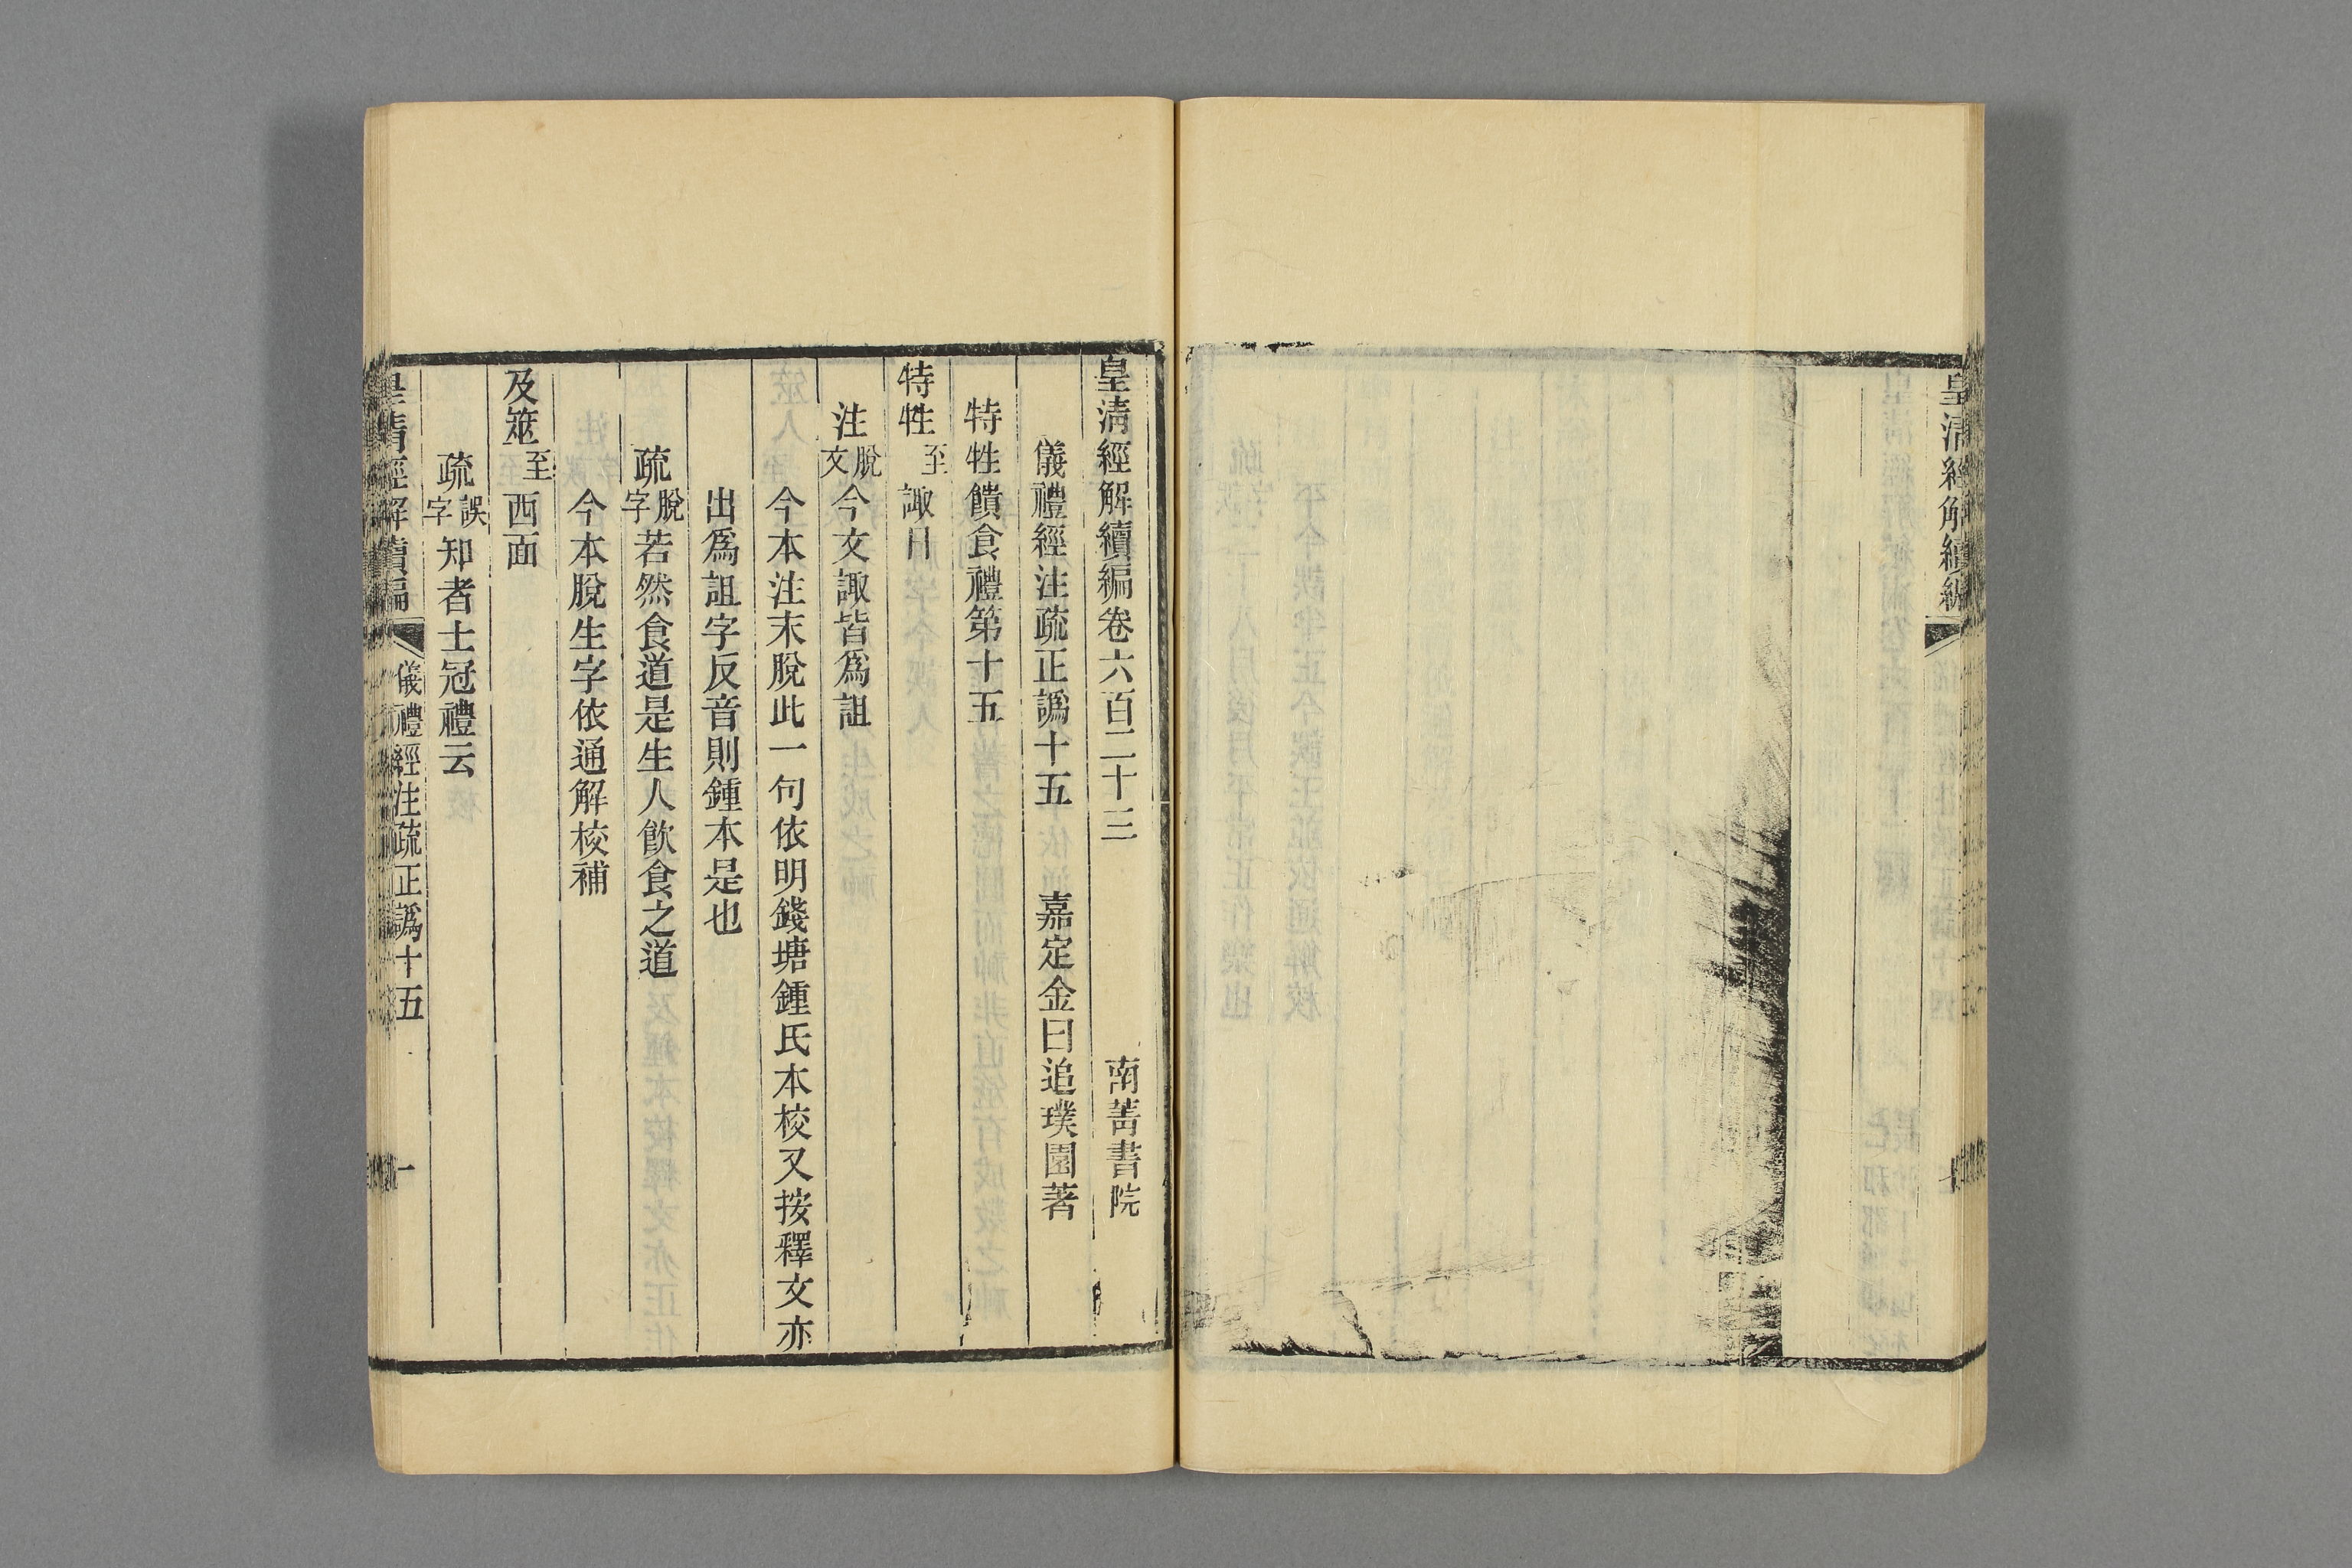 皇清經解續編
皇清經解續編卷六百二十三 南菁書院
儀禮經注疏正譌十五 嘉定金曰追璞園著
特牲饋食禮第十五
特牲至諏日
注脫文今文諏皆爲詛
今本注末脫此一句依明錢塘鍾氏本校又按釋文亦
出爲詛字反音則鍾本是也
疏脫字若然食道是生人飮食之道
今本脫生字依通解校補
及筮至西面
疏誤字知者士冠禮云
皇清經解續編 儀禮經注疏正譌十五 一